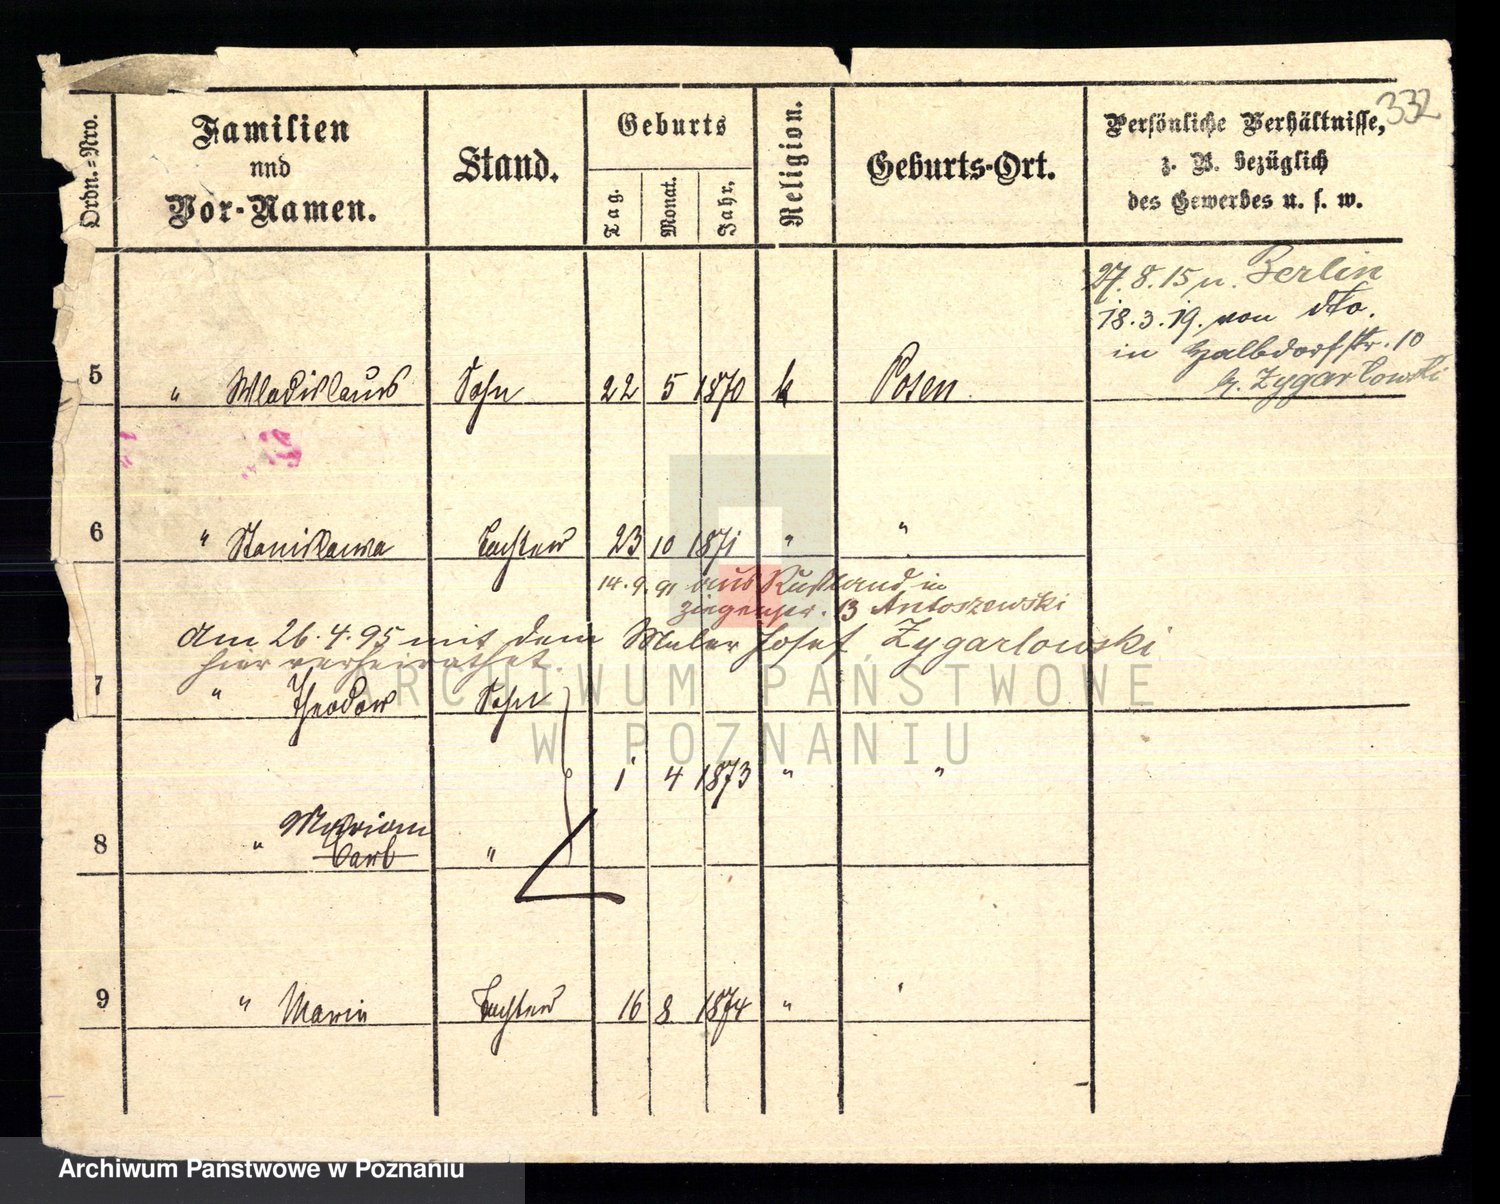 332
Ordn.-Nro.
Familien
und
Vor-Namen.
Stand.
Geburts
Tag.
Monat.
Jahr.
Religion.
Geburts-Ort.
Persönliche Verhältnisse,
z. B. bezüglich
des Gewerbes u. s. w.
27.8.15 n. Berlin
18.3.19. von dto.
in Halbdorfstr. 10
b. Zygarlowski
5 " Wladislaus Sohn 22 5 1870 k Posen
6 " Stanislawa Tochter 23 10 1871 " "
14.9.91 aus Rußland in
Ziegenstr. 13 Antoszewski
Am 26.4.95 mit dem Maler Josef Zygarlowski
hier verheirathet.
7 " Theodor Sohn
1 4 1873 " "
8 " Maryan
Carl "
9 " Marie Tochter 16 8 1874 " "
ARCHIWUM PAŃSTWOWE
W POZNANIU
Archiwum Państwowe w Poznaniu